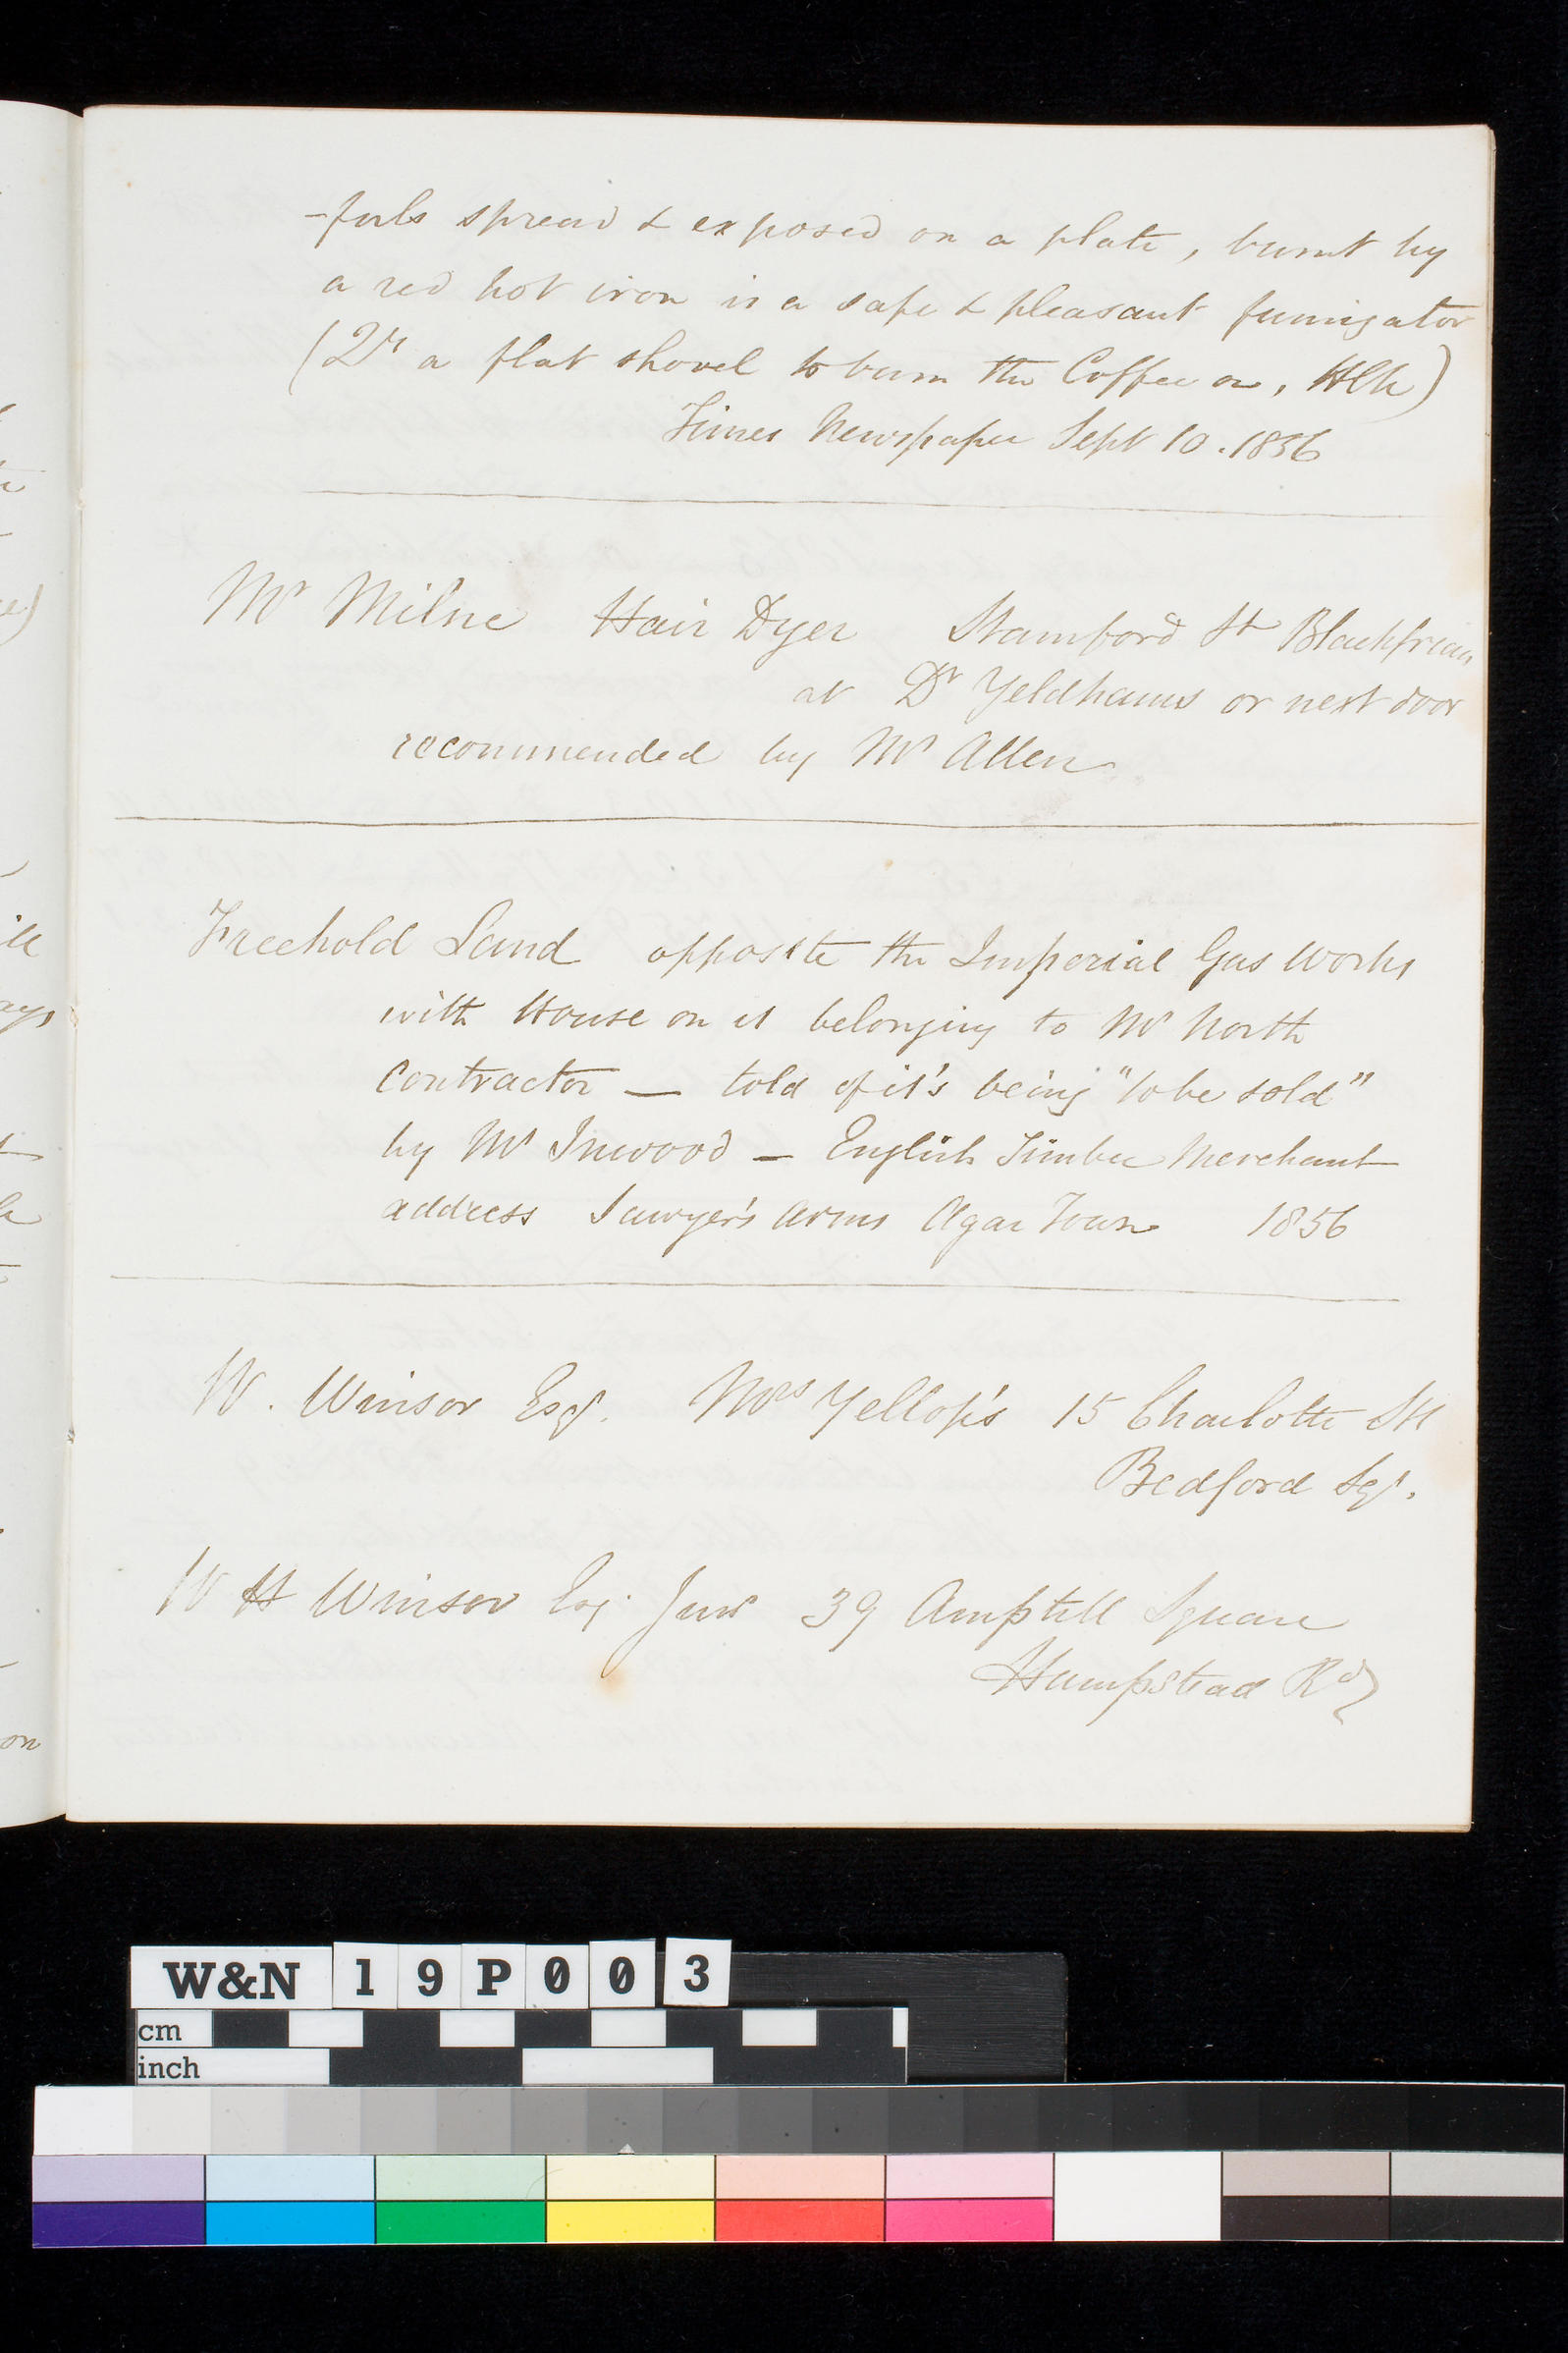 -fuls spread & exposed on a plate, burnt by
a red hot iron is a safe & pleasant fumigator
(Qr a flat shovel to burn the Coffee on, HCN)
Times Newspaper Sept 10. 1856
Mr Milne Hair Dyer Stamford St Blackfriars
at Dr Yeldhams or next door
recommended by Mr Allen
Freehold Land opposite the Imperial Gas Works
with House on it belonging to Mr North
Contractor — told of it's being "to be sold"
by Mr Inwood — English Timber Merchant
address Sawyer's Arms Agar Town 1856
W. Winsor Esqr. Mrs Yellop's 15 Charlotte Stt
Bedford Sqr.
W H Winsor Esq. Junr 39 Ampthill Square
Hampstead Rd
W&N 19P003
cm
inch